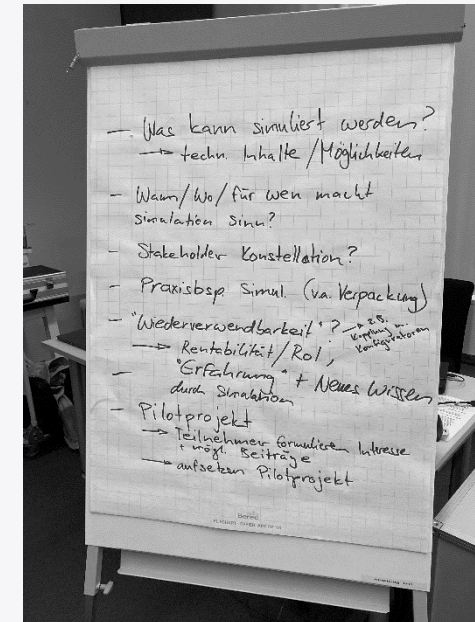 — Was kann simuliert werden?
→ techn. Inhalte / Möglichkeiten
- Wann / Wo / für wen macht
simulation sinn?
- Stakeholder Konstellation?
- Praxisbsp. Simul. (va. Verpackung)
- "Wiederverwendbarkeit"? → z.B.
Kopplung m.
Konfiguratoren
→ Rentabilität / RoI,
- "Erfahrung" + Neues Wissen
durch Simulation
- Pilotprojekt
→ Teilnehmer formulieren Interesse
+ mögl. Beiträge
→ aufsetzen Pilotprojekt